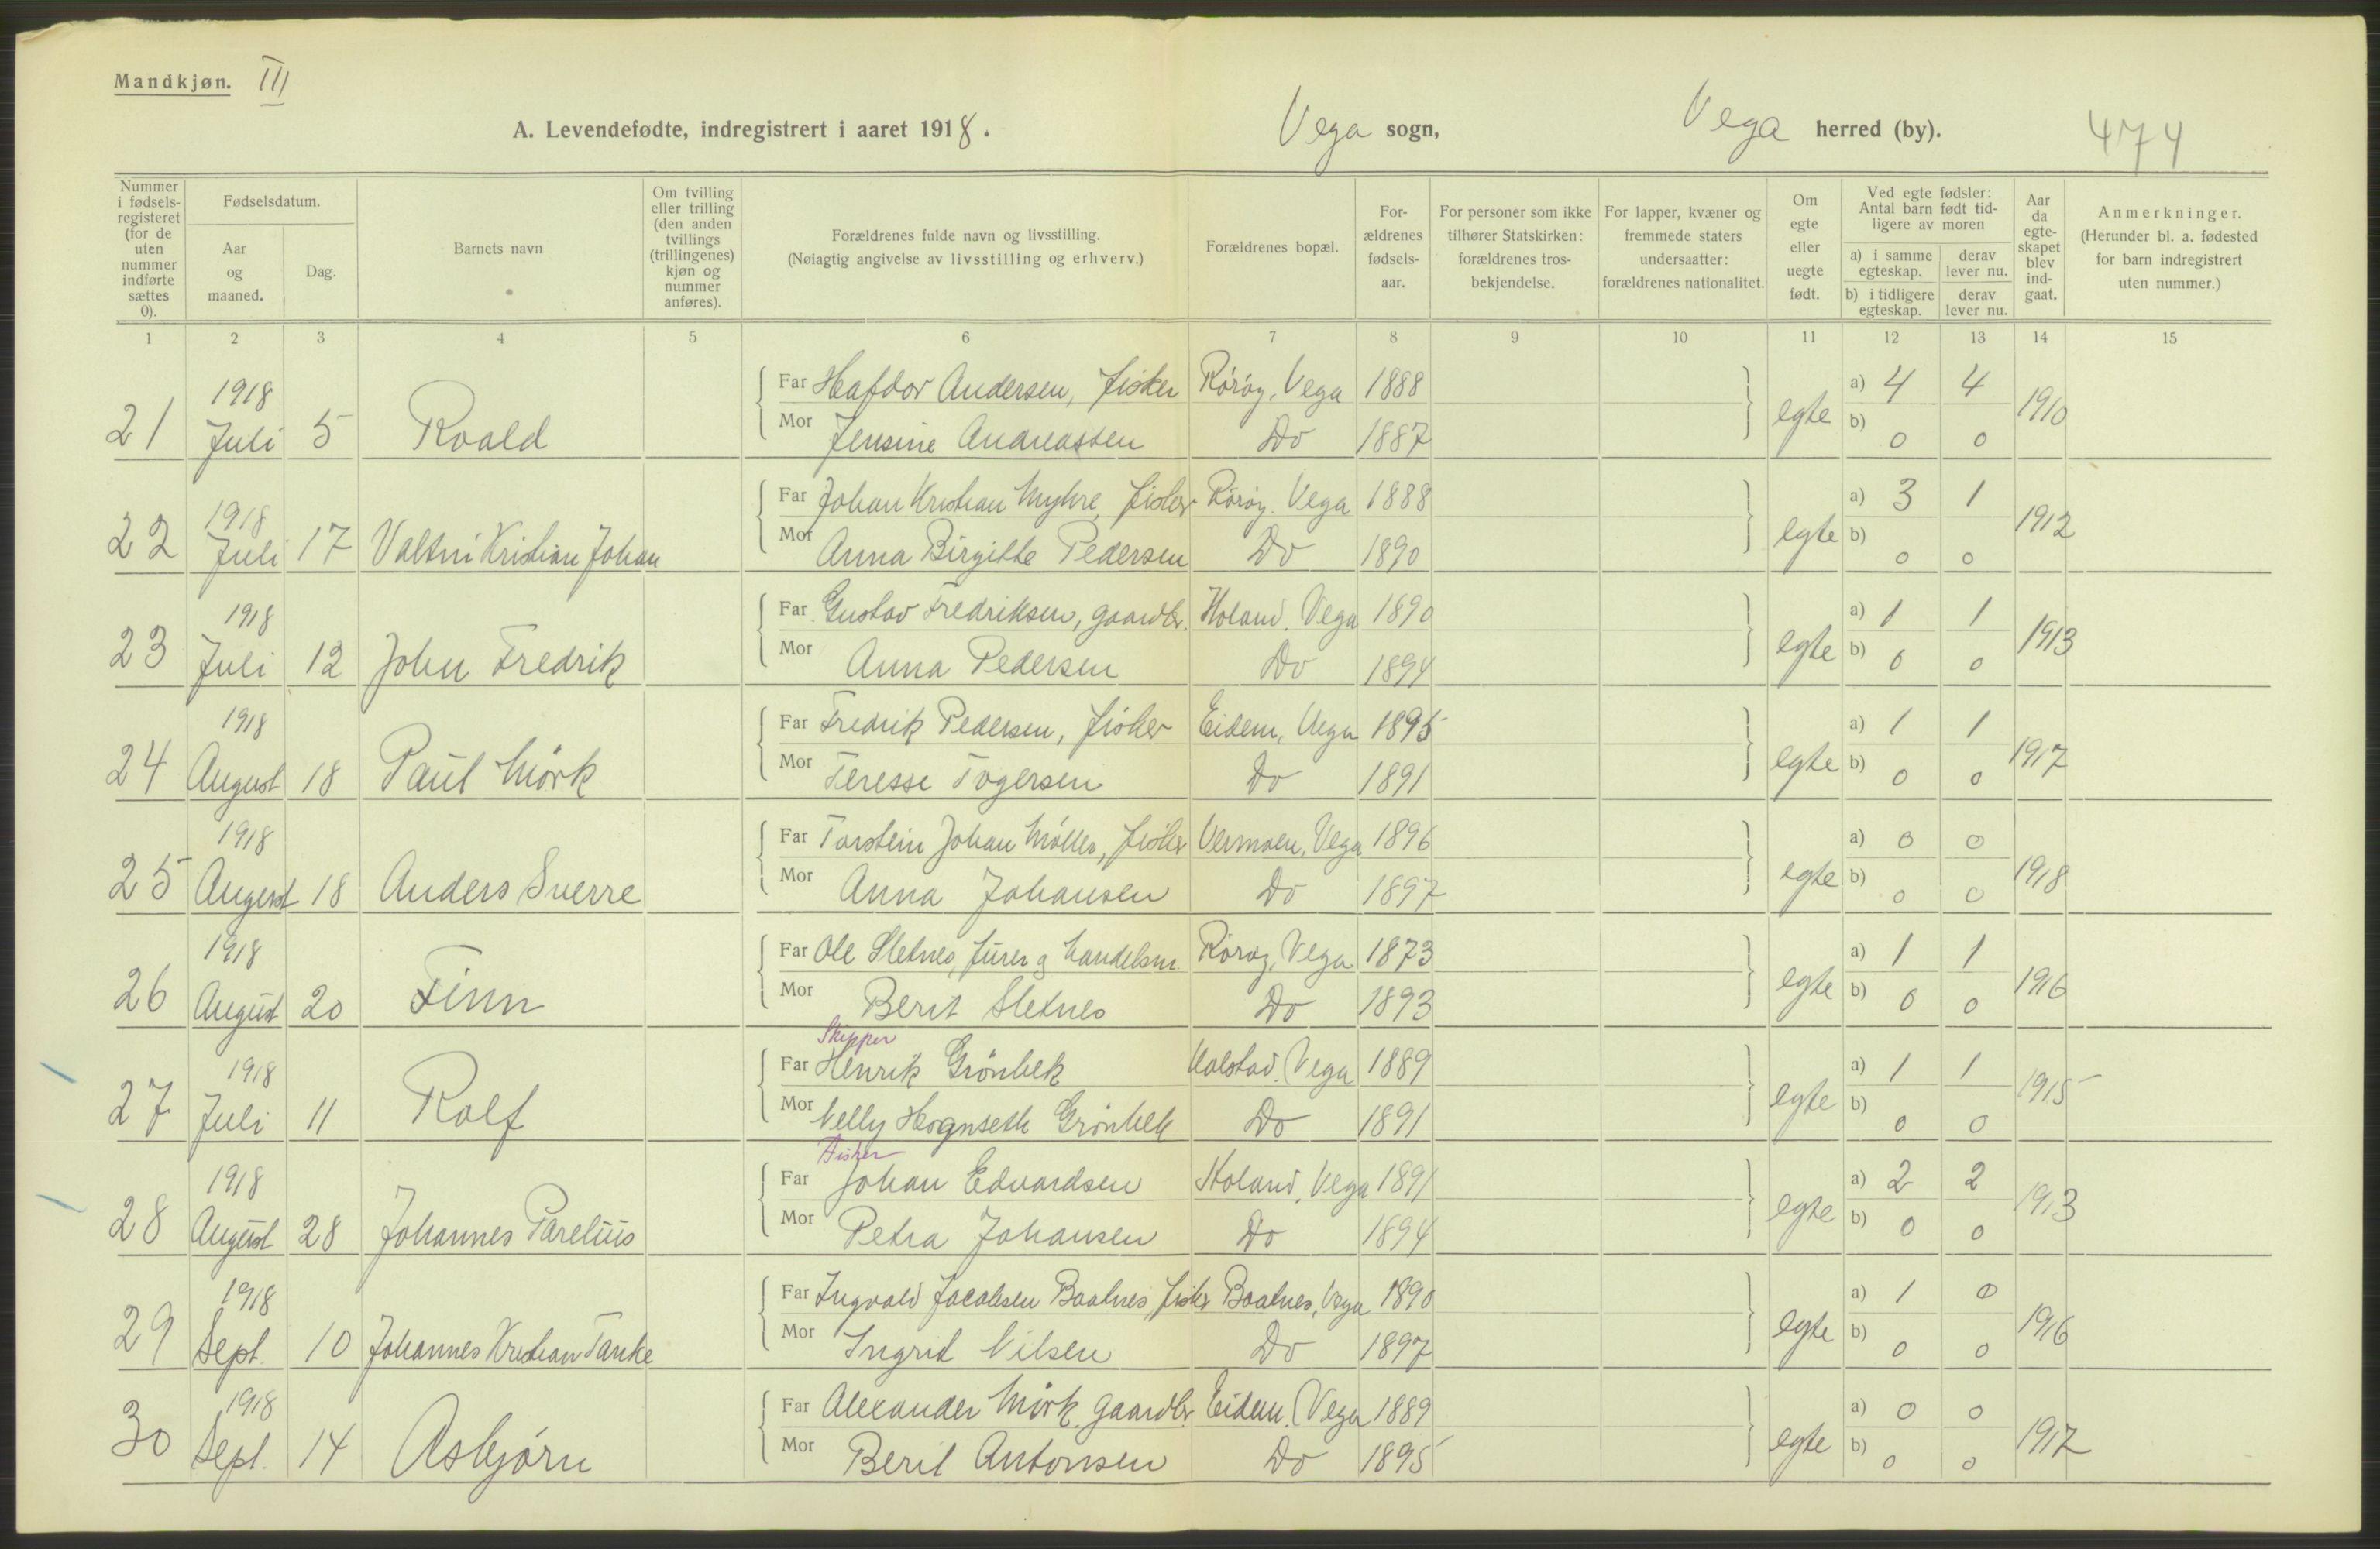 Mandkjøn. III
A. Levendefødte, indregistrert i aaret 1918. Vega sogn, Vega herred (by). 474
Nummer i fødsels-registeret (for de uten nummer indførte sættes 0).
Fødselsdatum.
Aar og maaned.
Dag.
Barnets navn
Om tvilling eller trilling (den anden tvillings (trillingenes) kjøn og nummer anføres).
Forældrenes fulde navn og livsstilling.
(Nøiagtig angivelse av livsstilling og erhverv.)
Forældrenes bopæl.
For-ældrenes fødsels-aar.
For personer som ikke tilhører Statskirken: forældrenes tros-bekjendelse.
For lapper, kvæner og fremmede staters undersaatter: forældrenes nationalitet.
Om egte eller uegte født.
Ved egte fødsler: Antal barn født tid-ligere av moren
a) i samme egteskap. derav lever nu.
b) i tidligere egteskap. derav lever nu.
Aar da egte-skapet blev ind-gaat.
Anmerkninger. (Herunder bl. a. fødested for barn indregistrert uten nummer.)
1 2 3 4 5 6 7 8 9 10 11 12 13 14 15
1918 Far Hafdor Andersen, fisker Rörøy, Vega 1888 a) 4 4
21 Juli 5 Roald Mor Jensine Andreassen Do 1887 egte b) 0 0 1910
1918 Far Johan Kristian Myhre, fisker Rörøy. Vega 1888 a) 3 1
22 Juli 17 Kristian Johan Mor Anna Birgitte Pedersen Do 1890 egte b) 0 0 1912
1918 Far Gustav Fredriksen, gaardbr. Holand. Vega 1890 a) 1 1
23 Juli 12 John Fredrik Mor Anna Pedersen Do 1894 egte b) 0 0 1913
1918 Far Fredrik Pedersen, fisker Eidem, Vega 1895 a) 1 1
24 August 18 Paul Mörk Mor Teresse Togersen Do 1891 egte b) 0 0 1917
1918 Far Torstein Johan Möller, fisker Vermoen, Vega 1896 a) 0 0
25 August 18 Anders Sverre Mor Anna Johansen Do 1897 egte b) 0 0 1918
1918 Far Ole Sletnes, furer og handelsm. Rörøy, Vega 1873 a) 1 1
26 August 20 Finn Mor Berit Sletnes Do 1893 egte b) 0 0 1916
Skipper
1918 Far Henrik Grönbek Valstad. Vega 1889 a) 1 1
27 Juli 11 Rolf Mor Nelly Hognseth Grönbek Do 1891 egte b) 0 0 1915
Fisker
1918 Far Johan Edvardsen Holand, Vega 1891 a) 2 2
28 August 28 Johannes Parelius Mor Petra Johansen Do 1894 egte b) 0 0 1913
1918 Far Ingvald Jacobsen Baatnes, fisker Baatnes, Vega 1890 a) 1 0
29 Sept. 10 Johannes Kristian Tanke Mor Ingrid Nilsen Do 1897 egte b) 0 0 1916
1918 Far Alexander Mörk, gaardbr. Eidem. Vega 1889 a) 0 0
30 Sept. 14 Asbjørn Mor Beril Antonsen Do 1895 egte b) 0 0 1917